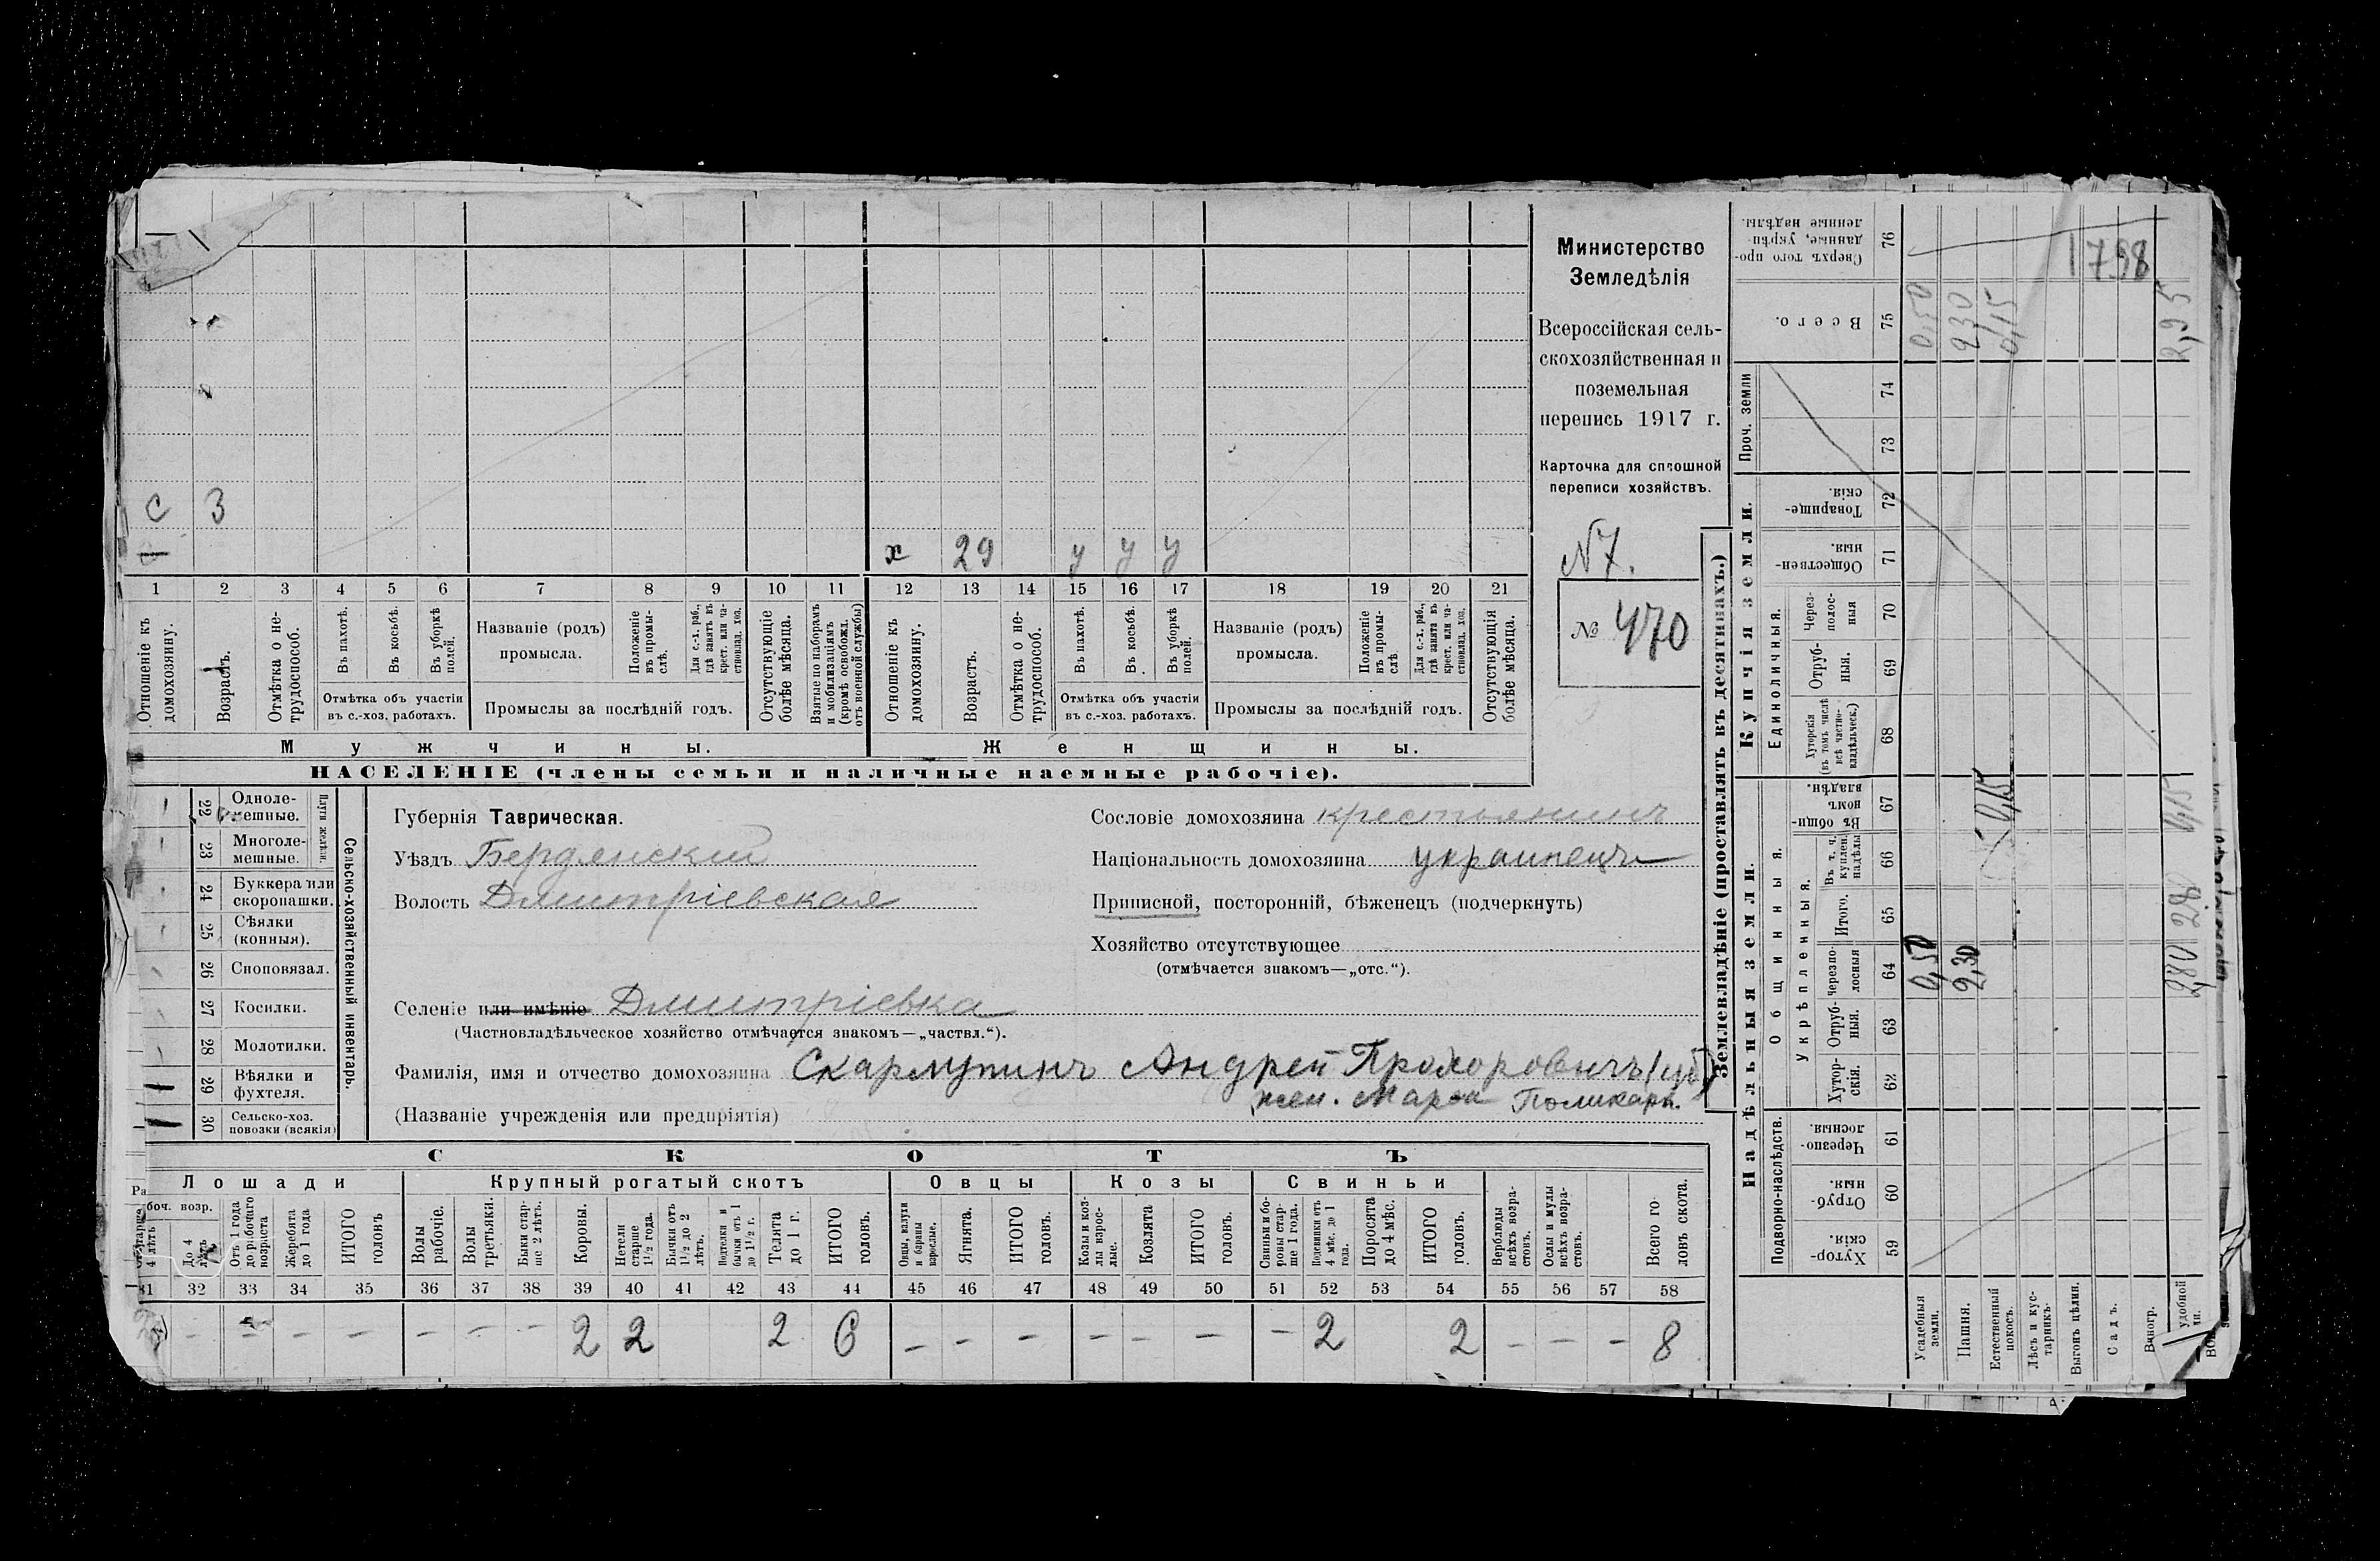 Министерство
Земледѣлія
Всероссійская сель-
скохозяйственная и
поземельная
перепись 1917 г.
Карточка для сплошной
переписи хозяйствъ.
N 7.
№ 470
с 3
х 29 у у у
1 2 3 4 5 6 7 8 9 10 11 12 13 14 15 16 17 18 19 20 21
Отношеніе къ домохозяину.
Возрастъ.
Отмѣтка о не-трудоспособ.
Въ пахотѣ.
Въ косьбѣ.
Въ уборкѣ полей.
Отмѣтка объ участіи
въ с.-хоз. работахъ.
Названіе (родъ)
промысла.
Положеніе въ промы-слѣ.
Для с.-х. раб., гдѣ занятъ въ крест. или ча-стновлад. хоз.
Промыслы за послѣдній годъ.
Отсутствующіе болѣе мѣсяца.
Взятые по наборамъ и мобилизаціямъ (кромѣ освобожд. отъ военной службы)
Отношеніе къ домохозяину.
Возрастъ.
Отмѣтка о не-трудоспособ.
Въ пахотѣ.
Въ косьбѣ.
Въ уборкѣ полей.
Отмѣтка объ участіи
въ с.-хоз. работахъ.
Названіе (родъ)
промысла.
Положеніе въ промы-слѣ
Для с.-х. раб., гдѣ занята въ крест. или ча-стновлад. хоз.
Промыслы за послѣдній годъ.
Отсутствующія болѣе мѣсяца.
Мужчины.
Женщины.
НАСЕЛЕНІЕ (члены семьи и наличные наемные рабочіе).
22 Одноле-мешные.
23 Многоле-мешные.
Плуги желѣзн.
24 Буккера или скоропашки.
25 Сѣялки (конныя).
26 Сноповязал.
27 Косилки.
28 Молотилки.
29 Вѣялки и фухтеля.
30 Сельско-хоз. повозки (всякія)
Сельско-хозяйственный инвентарь.
Губернія Таврическая.
Уѣздъ Бердянскій
Волость Дмитріевская
Селеніе или имѣніе Дмитріевка
(Частновладѣльческое хозяйство отмѣчается знакомъ—„частвл.“).
Фамилія, имя и отчество домохозяина Скармутинъ Андрей Прохоровичъ
жен. Марфа Поликарп.
(Названіе учрежденія или предпріятія)
Сословіе домохозяина крестьянинъ
Національность домохозяина украинецъ
Приписной, посторонній, бѣженецъ (подчеркнуть)
Хозяйство отсутствующее
(отмѣчается знакомъ—„отс.“).
СКОТЪ
Лошади
Крупный рогатый скотъ
Овцы
Козы
Свиньи
боч. возр.
Старше 4 лѣтъ
До 4 лѣтъ
Отъ 1 года до рабочаго возраста
Жеребята до 1 года
ИТОГО головъ
Волы рабочіе.
Волы третьяки.
Быки стар-ше 2 лѣтъ.
Коровы.
Нетели старше 1½ года.
Бычки отъ 1½ до 2 лѣтъ.
Подтелки и бычки отъ 1 до 1½ г.
Телята до 1 г.
ИТОГО головъ.
Овцы, валухи и бараны взрослые.
Ягнята.
ИТОГО головъ.
Козы и коз-лы взрос-лые.
Козлята
ИТОГО головъ.
Свиньи и бо-ровы стар-ше 1 года.
Подсвинки отъ 4 мѣс. до 1 года.
Поросята до 4 мѣс.
ИТОГО головъ.
Верблюды всѣхъ возра-стовъ.
Ослы и мулы всѣхъ возра-стовъ.
Всего го-ловъ скота.
31 32 33 34 35 36 37 38 39 40 41 42 43 44 45 46 47 48 49 50 51 52 53 54 55 56 57 58
– – – – – – – 2 2 2 6 – – – – – – – 2 2 – – – 8
Землевладѣніе (проставлять въ десятинахъ.)
Купчія земли.
Надѣльныя земли.
Сверхъ того про-данные, укрѣп-ленные надѣлы. 76
Всего. 75
0,50
2,30
0,15
2,95
1798
Проч. земли
74
73
Товарище-скія. 72
Обществен-ныя. 71
Единоличныя.
Через-полос-ныя 70
Отруб-ныя. 69
Хуторскія (въ томъ числѣ всѣ частно-владѣльческ.) 68
Общинныя.
Въ общин-номъ владѣн. 67
0,15
0,15
Укрѣпленныя.
Въ т. ч. куплен. надѣлы 66
Итого. 65
Черезпо-лосныя 64
0,50
2,30
2,80
Отруб-ныя. 63
Хутор-скія. 62
Подворно-наслѣдств.
Черезпо-лосныя. 61
Отруб-ныя. 60
Хутор-скія. 59
Усадебныя земли.
Пашня.
Естественный покосъ.
Лѣсъ и кус-тарникъ.
Выгонъ цѣлин.
Садъ.
Виногр.
удобной